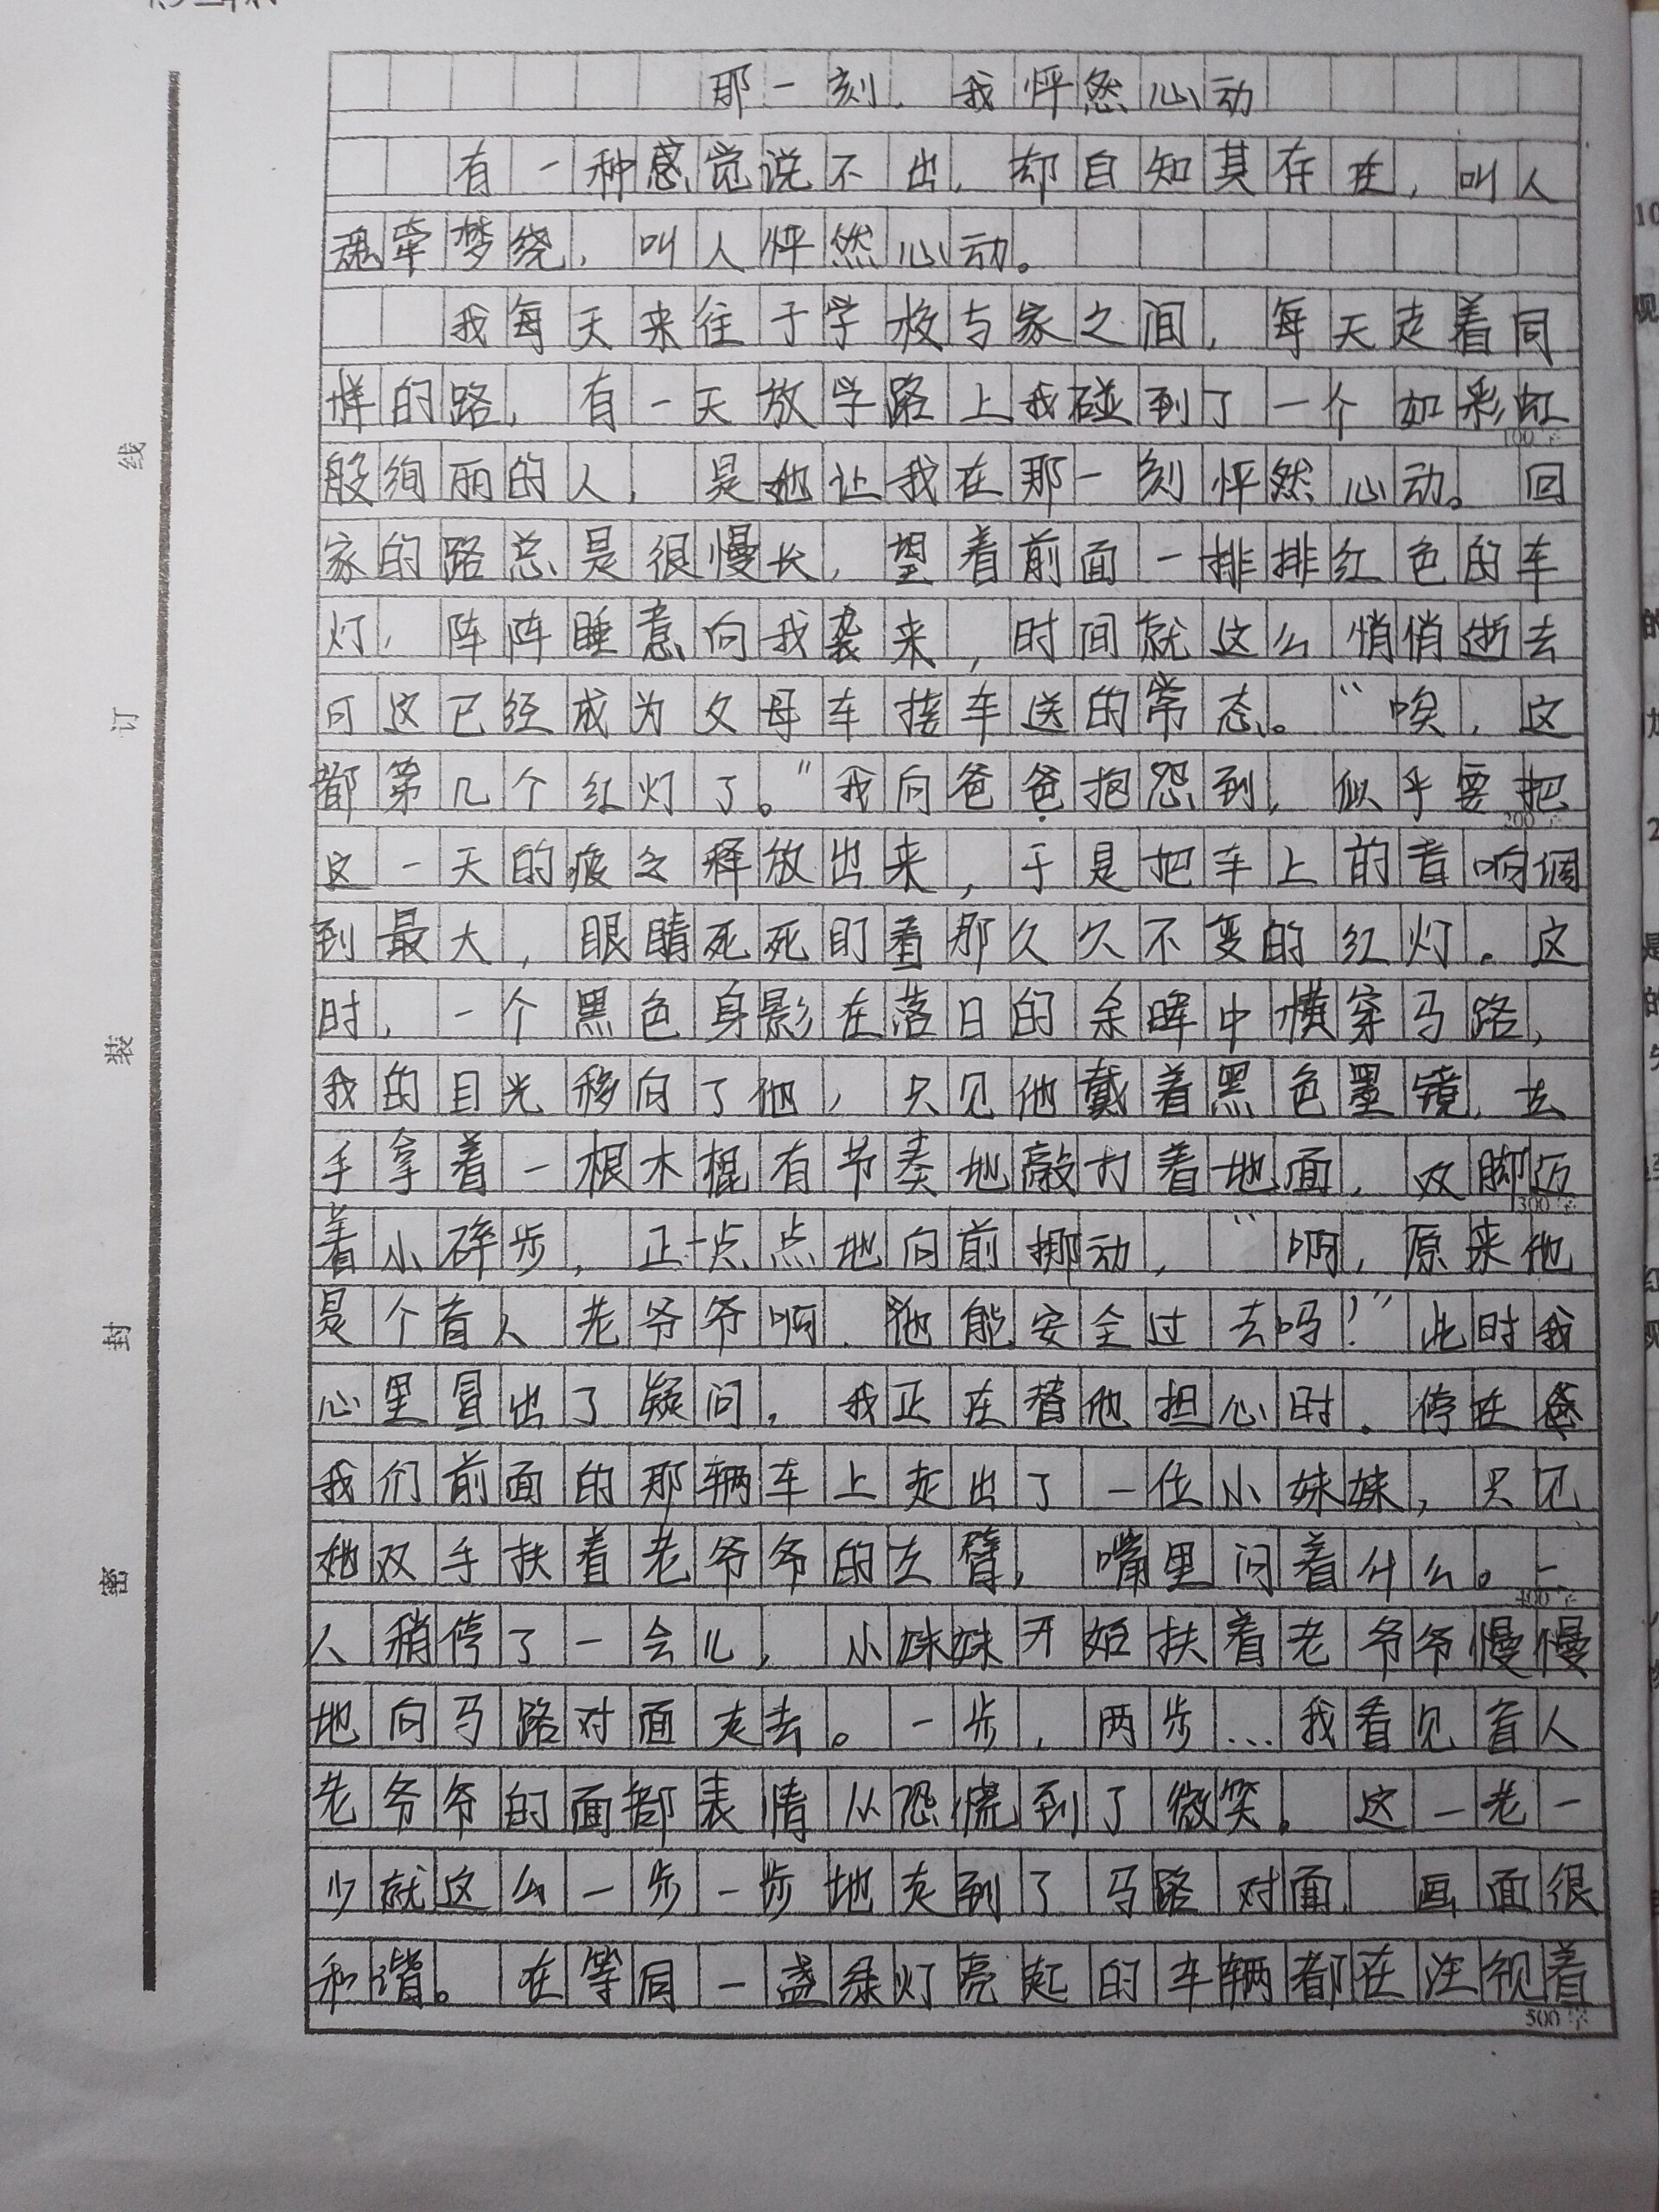 那一刻，我怦然心动
有一种感觉说不出，却自知其存在，叫人
魂牵梦绕，叫人怦然心动。
我每天来往于学校与家之间，每天走着同
样的路，有一天放学路上我碰到了一个如彩虹
100字
般绚丽的人，是她让我在那一刻怦然心动。回
家的路总是很慢长，望着前面一排排红色的车
灯，阵阵睡意向我袭来，时间就这么悄悄逝去
可这已经成为父母车接车送的常态。“唉，这
都第几个红灯了。”我向爸爸抱怨到，似乎要把
200字
这一天的疲乏释放出来，于是把车上的音响调
到最大，眼睛死死盯着那久久不变的红灯。这
时，一个黑色身影在落日的余晖中横穿马路，
我的目光移向了他，只见他戴着黑色墨镜，左
手拿着一根木棍有节奏地敲打着地面，双脚迈
300字
着小碎步，正一点点地向前挪动，“啊，原来他
是个盲人老爷爷啊，他能安全过去吗！”此时我
心里冒出了疑问，我正在替他担心时，停在
我们前面的那辆车上走出了一位小妹妹，只见
她双手扶着老爷爷的左臂，嘴里问着什么。二
400字
人稍停了一会儿，小妹妹开始扶着老爷爷慢慢
地向马路对面走去。一步，两步…我看见盲人
老爷爷的面部表情从恐慌到了微笑。这一老一
少就这么一步一步地走到了马路对面，画面很
和谐。在等同一盏绿灯亮起的车辆都在注视着
500字
线
订
装
封
密